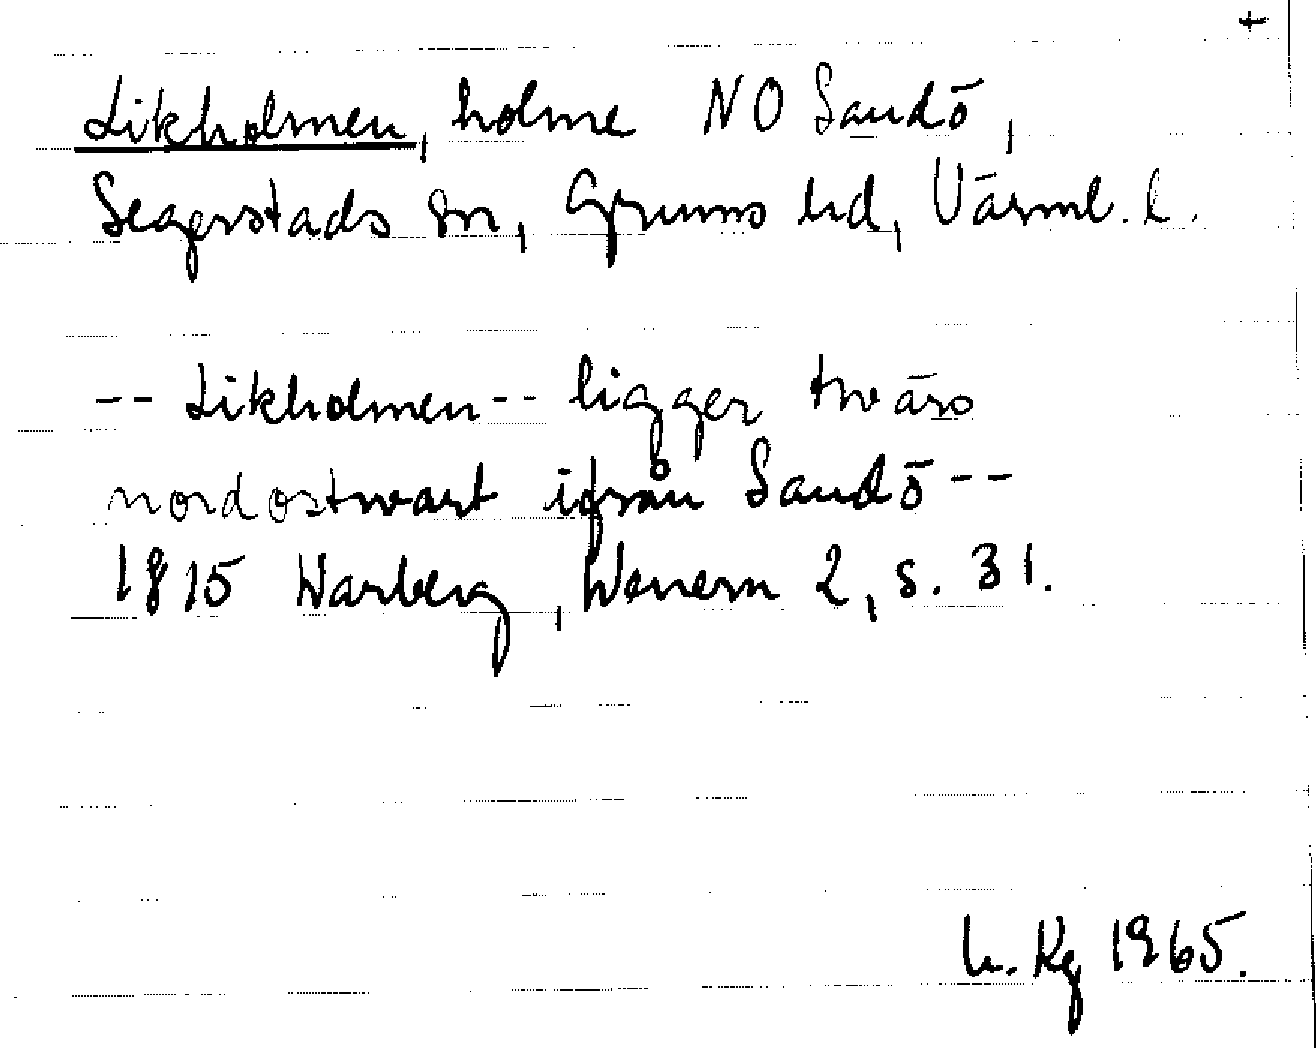 +
Likholmen, holme NO Sandö,
Segerstads sn, Grums hd, Värml. l.
-- Likholmen -- ligger twärs
nordostwart ifrån Sandö --
1815 Warberg, Wenern 2, s. 31.
L. Kg 1965.